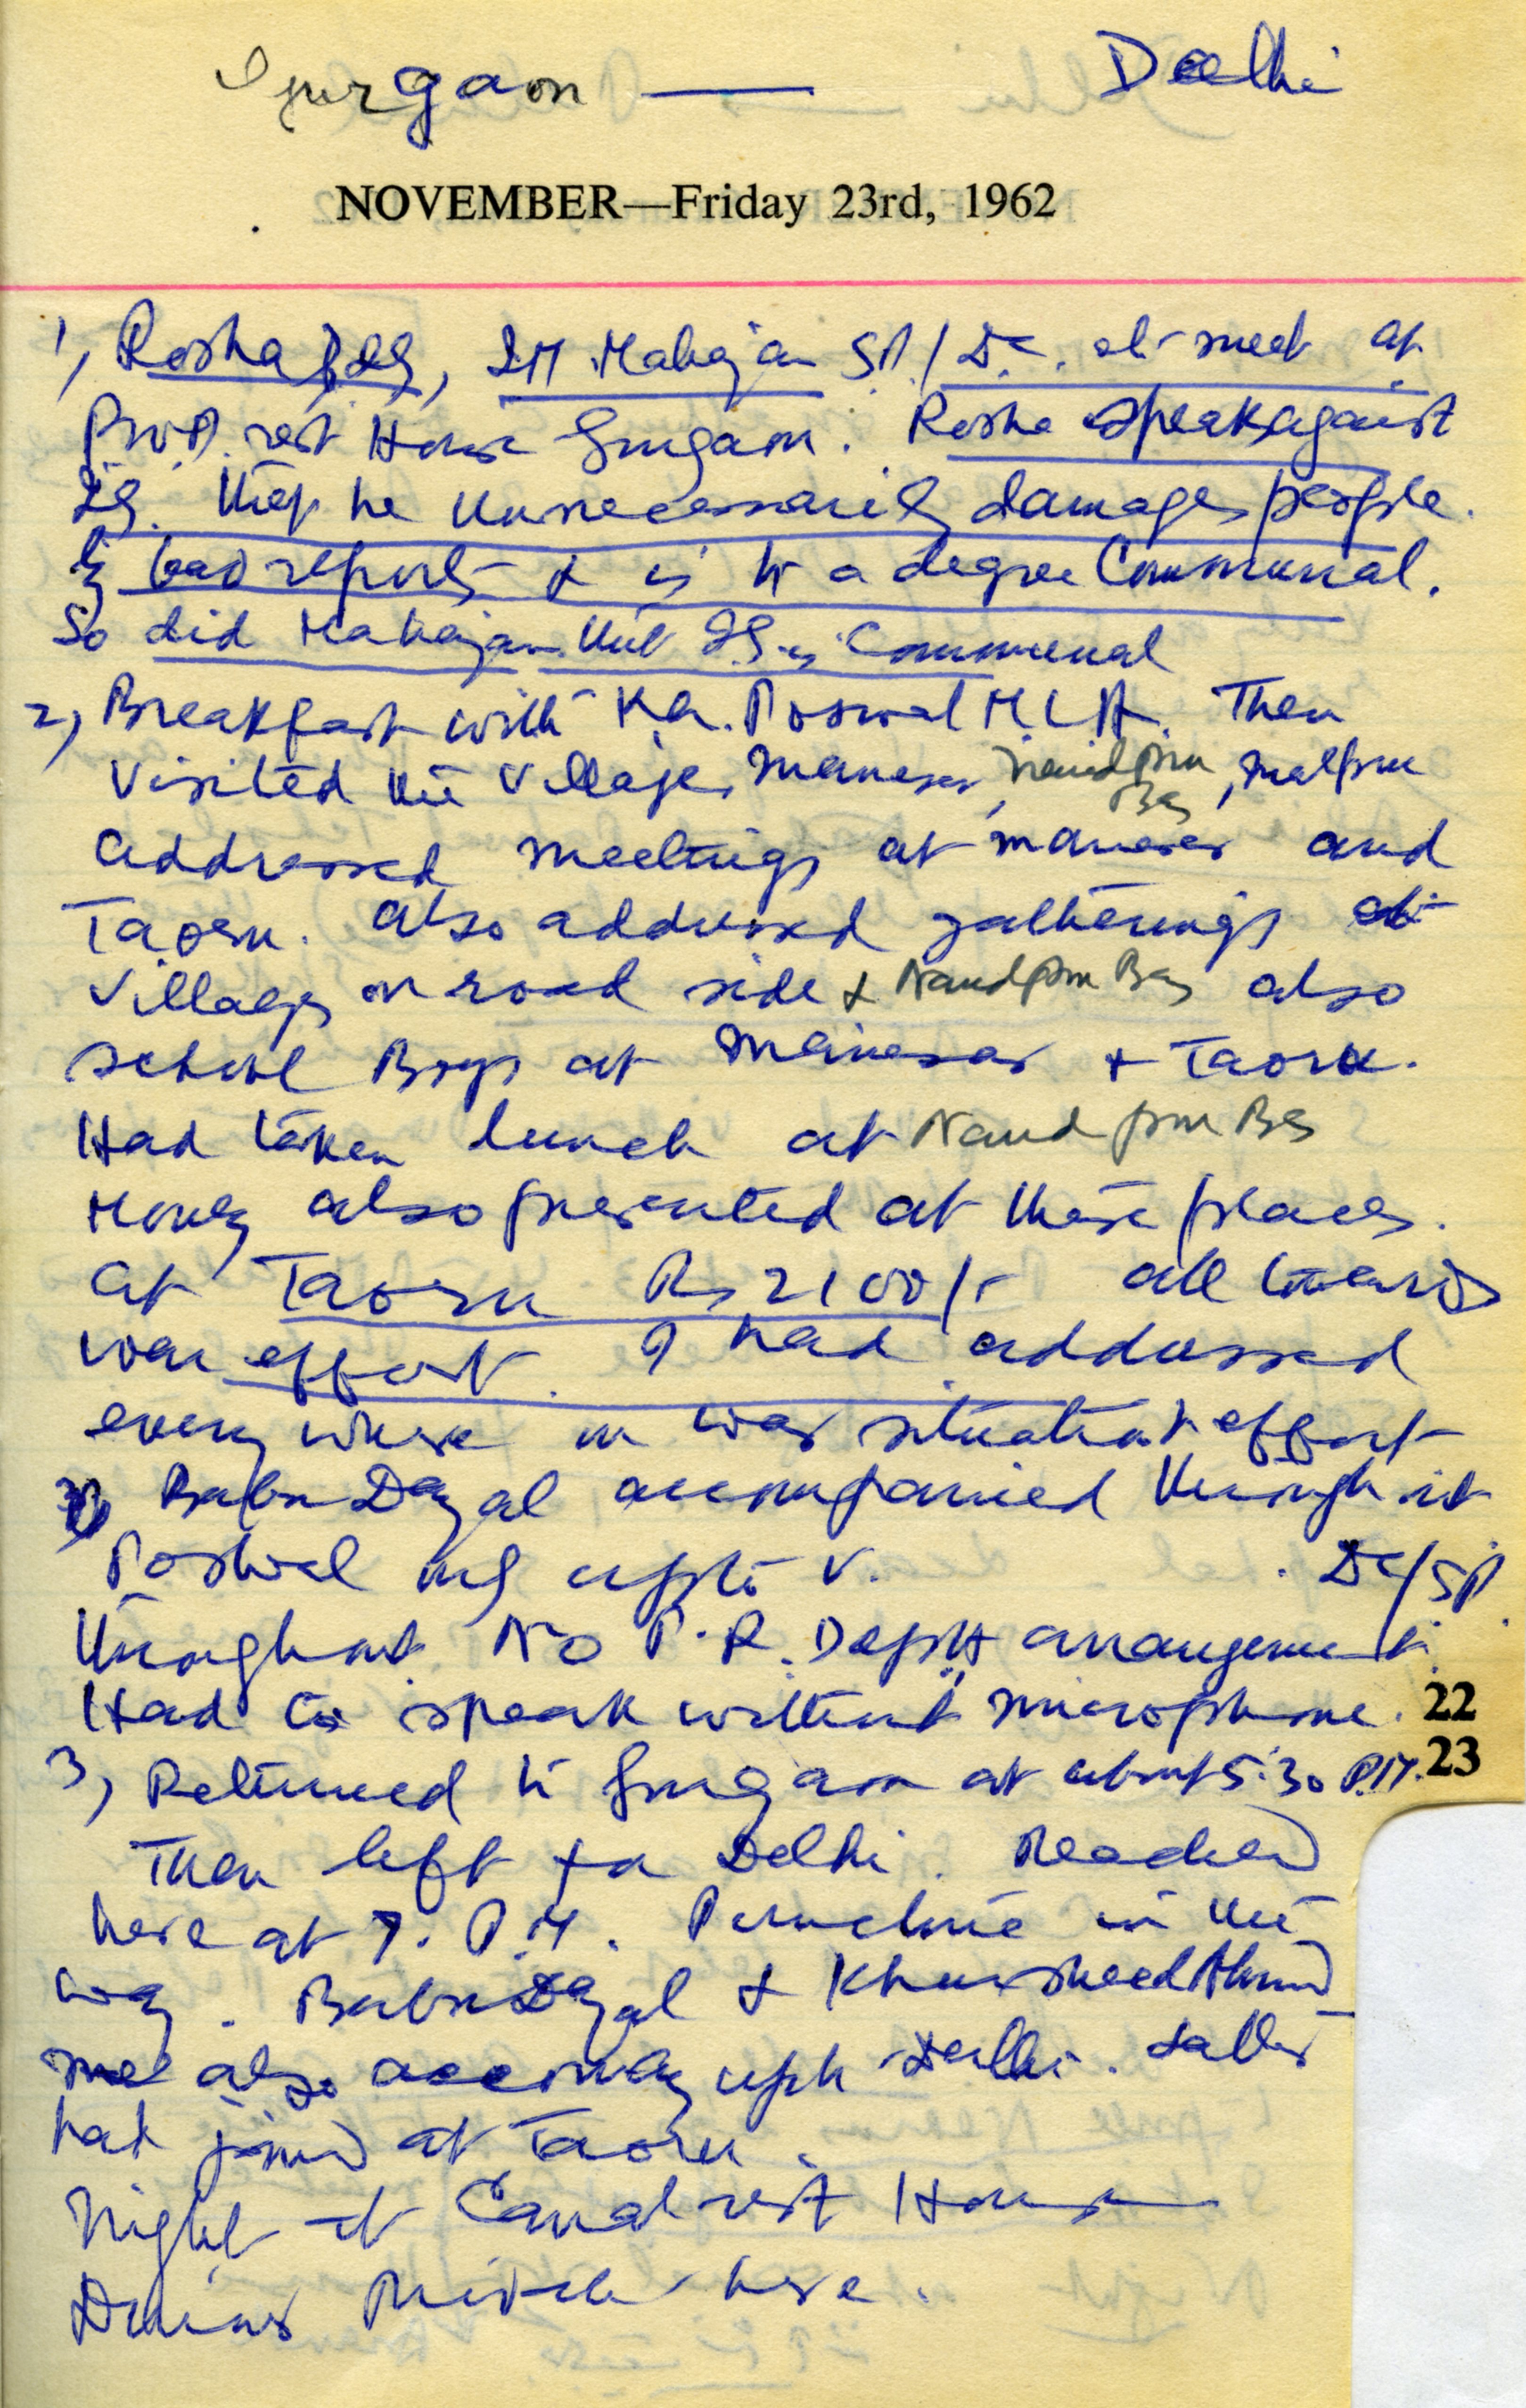 Gurgaon — Delhi
NOVEMBER—Friday 23rd, 1962
1, Rosha DIG, Mahajan SP/DC. at meet at
P.W.D. rest House Gurgaon. Rosha speak against
IG. that he unnecessarily damages people.
by bad reports & is to a degree Communal.
So did Mahajan that IG is Communal
2, Breakfast with K.L. Poswal M.L.A. Then
visited the villages Manesar, Nandpur Bas, Malpur
addressed meetings at Manesar and
Taoru. also addressed gatherings at
villages on road side & Nandpur Bas also
school Boys at Manesar & Taoru.
Had taken lunch at Nandpur Bas
Money also presented at these places.
at Taoru Rs 2100/- all towards
war effort. I had addressed
every where on war situation & effort
Babu Dayal accompanied through out
Poswal upto V. . DC/SP.
throughout No P.R. Deptt arrangement.
Had to speak without microphone. 22
3, Returned to Gurgaon at about 5.30 P.M. 23
Then left for Delhi. Reached
here at 7. P.M. in the
way. Babu Dayal & Khursheed Ahmed
also accompany upto Delhi. Latter
had joined at Taoru.
Night at Canal rest House
Dinner here.